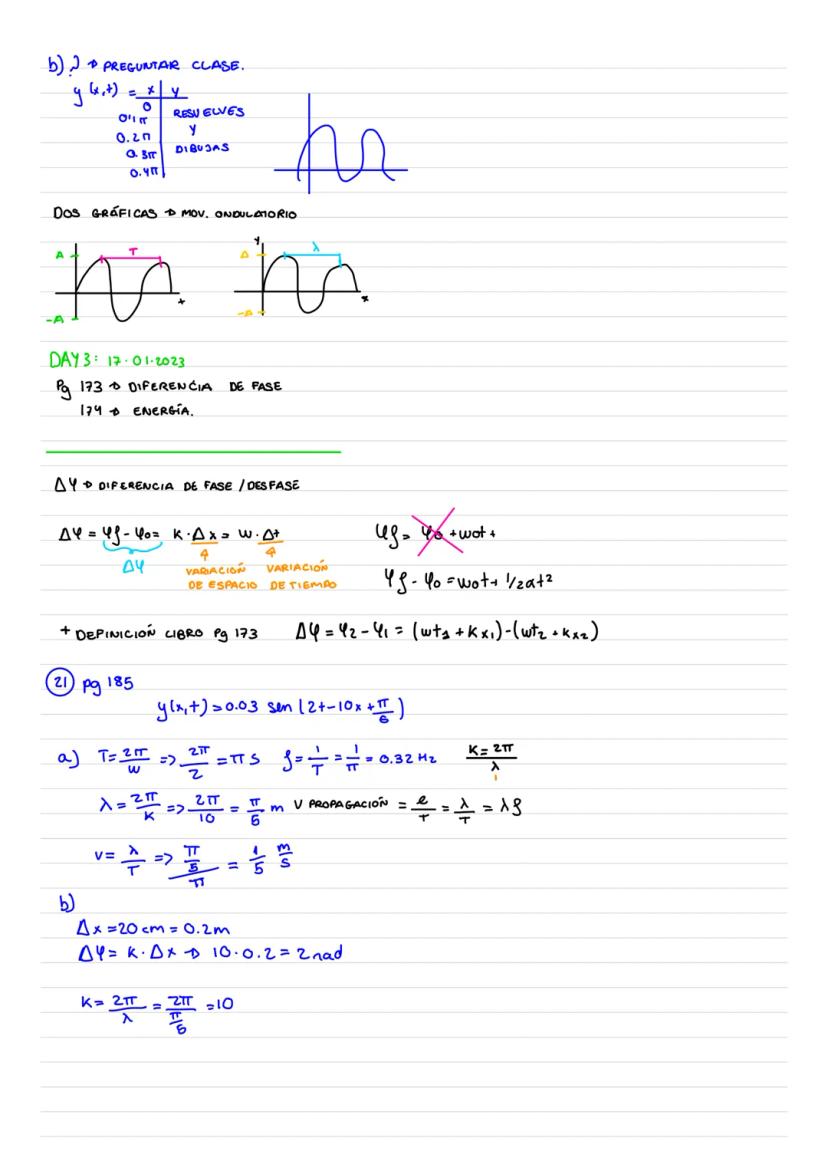 b) ? → PREGUNTAR CLASE.
y (x,t) = x | y
0
0'1π
0.2π
0.3π
0.4π
RESUELVES
Y
DIBUJAS
DOS GRÁFICAS → MOV. ONDULATORIO
A T
-A t
y
A λ
-A x
DAY 3: 17.01.2023
Pg 173 → DIFERENCIA DE FASE
174 → ENERGÍA.
Δφ → DIFERENCIA DE FASE / DESFASE
Δφ = φf - φ0 = K·Δx = w·Δt
Δφ
VARIACIÓN DE ESPACIO
VARIACIÓN DE TIEMPO
φf = φ0 + wot +
φf - φ0 = wot + 1/2at²
+ DEFINICIÓN LIBRO Pg 173 Δφ = φ2 - φ1 = (wt1 + Kx1)-(wt2 + Kx2)
21 pg 185
y(x,t) = 0.03 sen (2t-10x + π/6)
a) T = 2π/w => 2π/2 = π s f = 1/T = 1/π = 0.32 Hz K = 2π/λ
λ = 2π/K => 2π/10 = π/5 m V PROPAGACIÓN = e/T = λ/T = λf
v = λ/T => π/5/π = 1/5 m/s
b)
Δx = 20 cm = 0.2m
Δφ = K·Δx → 10·0.2 = 2 rad
K = 2π/λ = 2π/π/5 = 10